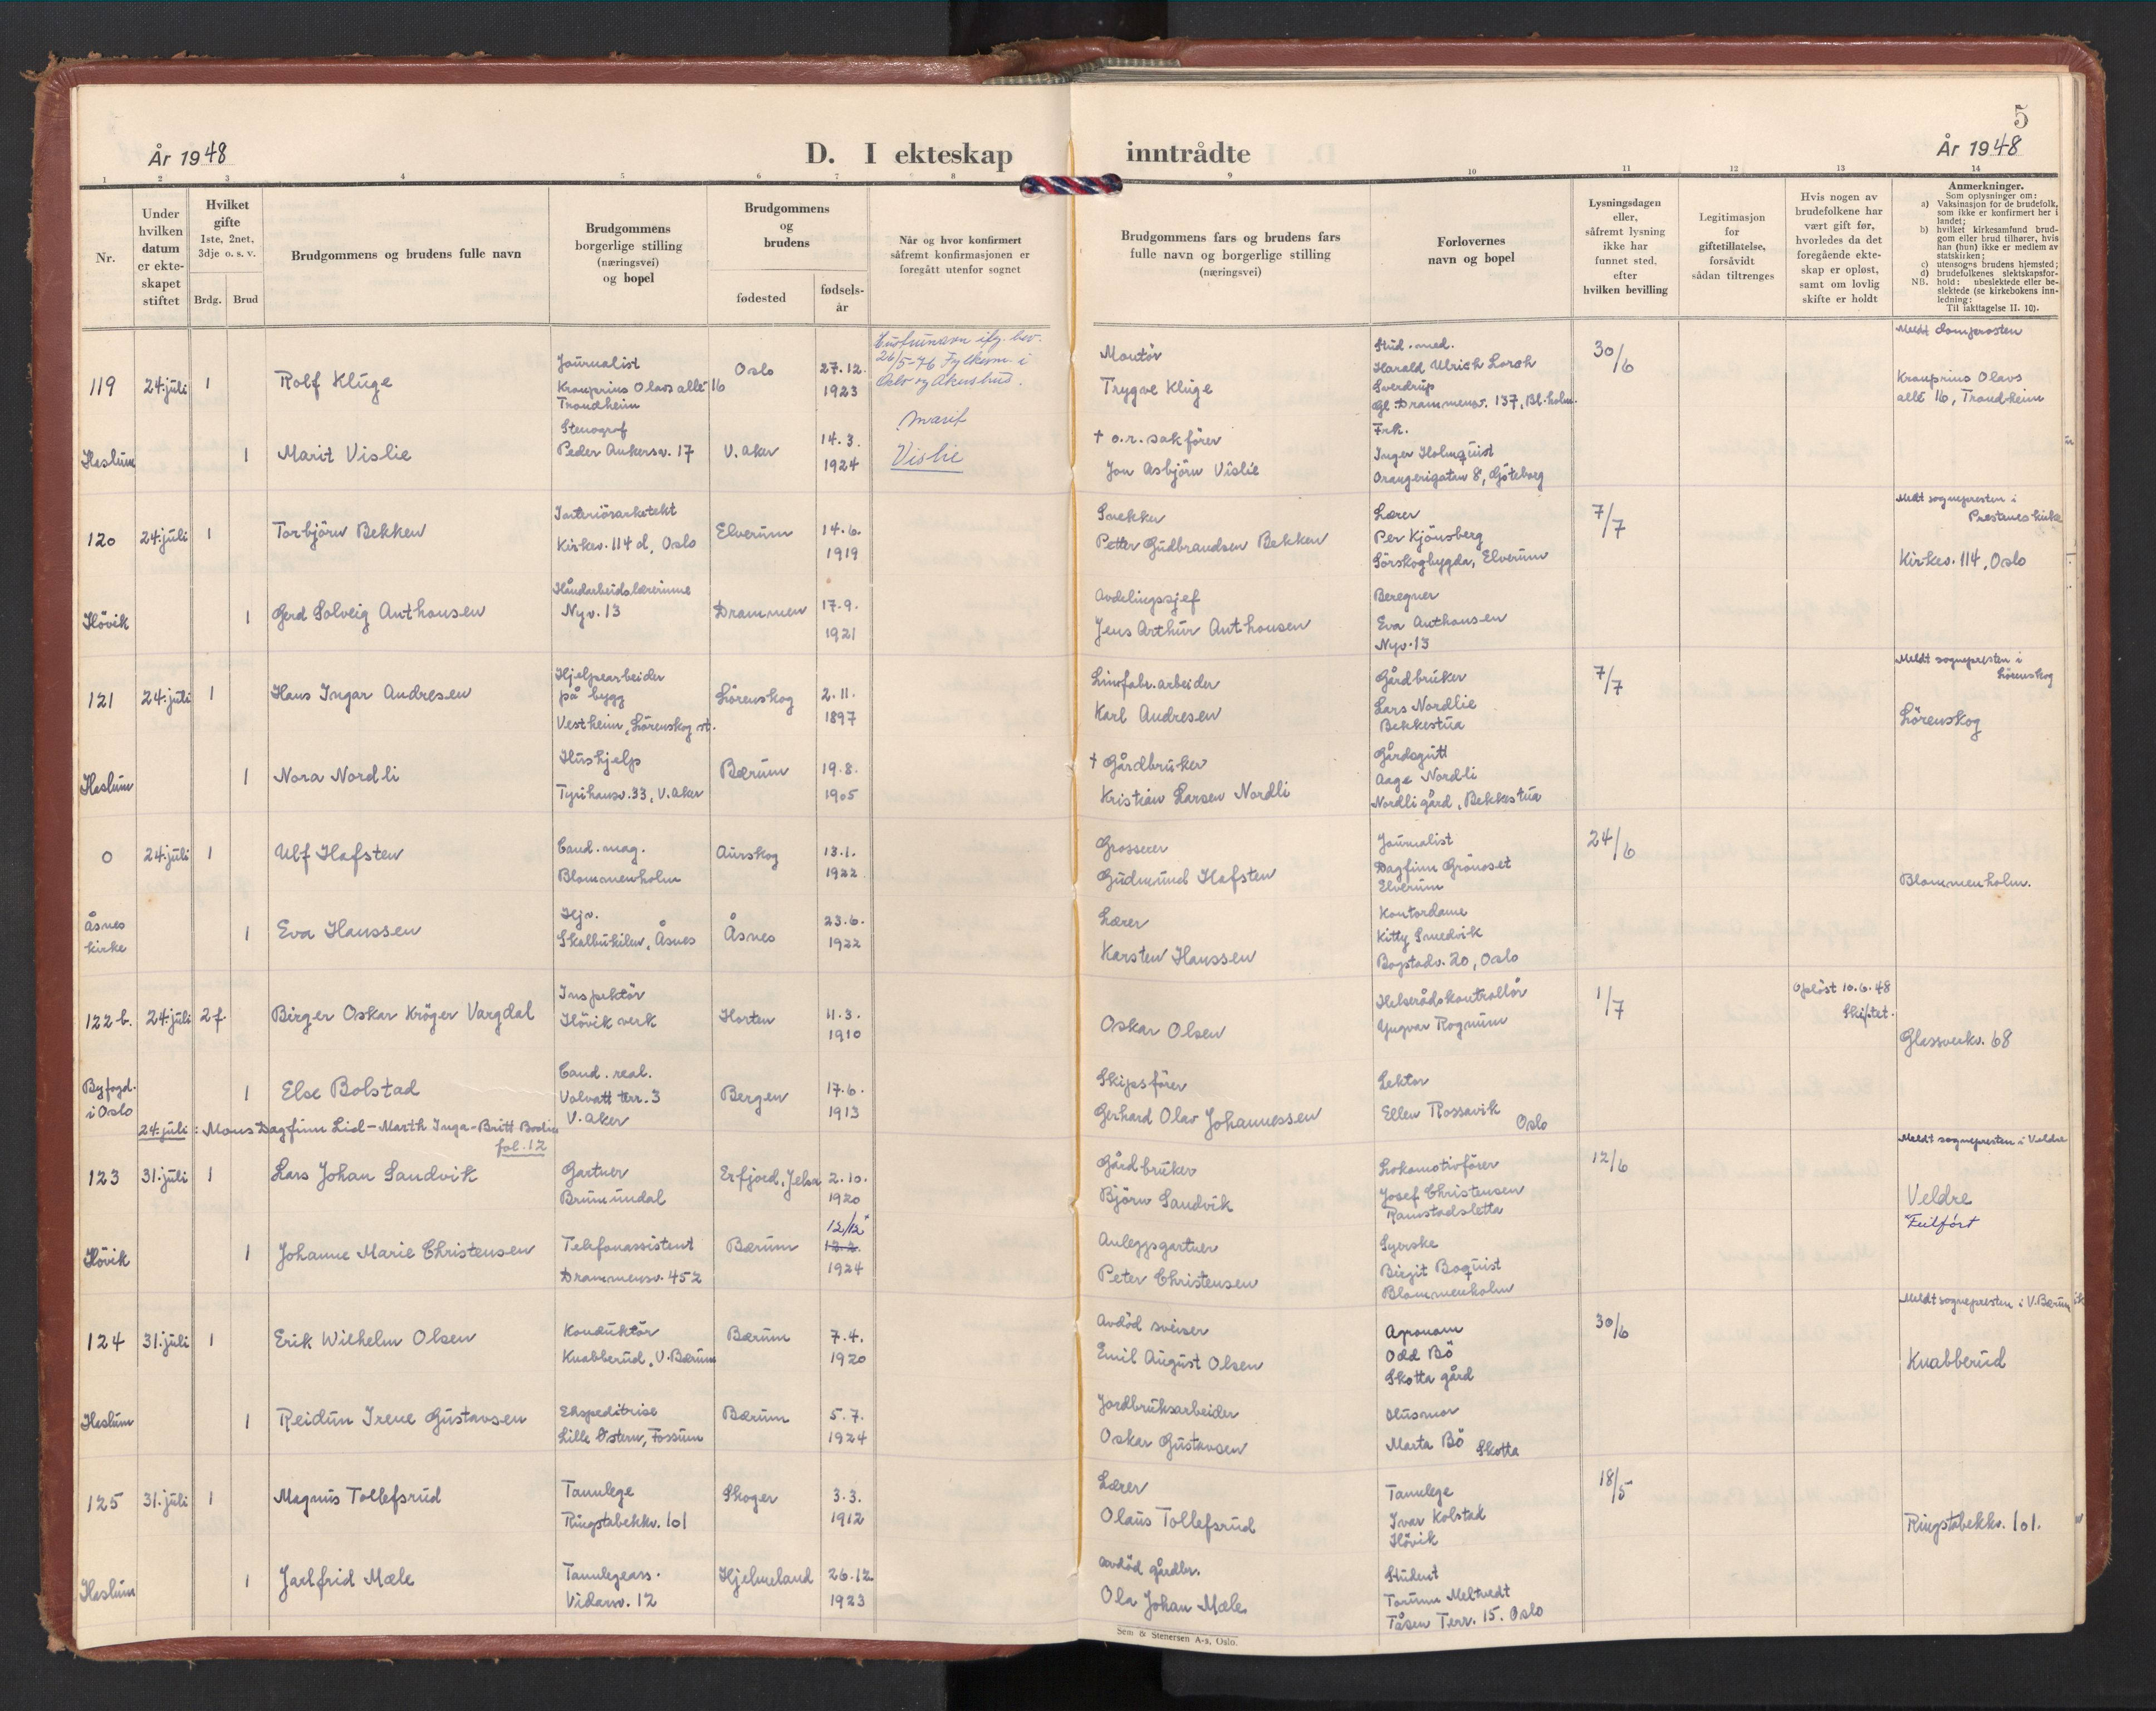 5
År 1948
D. I ekteskap inntrådte
År 1948
1 2 3 4 5 6 7 8 9 10 11 12 13 14
Nr.
Under hvilken datum er ekteskapet stiftet
Hvilket gifte
1ste, 2net, 3dje o. s. v.
Brdg. Brud
Brudgommens og brudens fulle navn
Brudgommens borgerlige stilling (næringsvei) og bopel
Brudgommens og brudens
fødested
fødsels-år
Når og hvor konfirmert såfremt konfirmasjonen er foregått utenfor sognet
Brudgommens fars og brudens fars fulle navn og borgerlige stilling (næringsvei)
Forlovernes navn og bopel
Lysningsdagen eller, såfremt lysning ikke har funnet sted, efter hvilken bevilling
Legitimasjon for giftetillatelse, forsåvidt sådan tiltrenges
Hvis nogen av brudefolkene har vært gift før, hvorledes da det foregående ekteskap er opløst, samt om lovlig skifte er holdt
Anmerkninger.
Som oplysninger om:
a) Vaksinasjon for de brudefolk, som ikke er konfirmert her i landet;
b) hvilket kirkesamfund brudgom eller brud tilhører, hvis han (hun) ikke er medlem av statskirken;
c) utensogns brudens hjemsted;
d) brudefolkenes slektskapsforhold: ubeslektede eller beslektede (se kirkebokens innledning:
NB.
Til iakttagelse II. 10).
119 24.juli 1 Rolf Kluge
Journalist
Kronprins Olavs allé 16
Trondheim
Oslo 27.12. 1923
26/5-76 Fylkesm. i
Oslo og Akershus.
Montör
Trygve Kluge
Stud. med.
Harald Ulrich
Sverdrup
Gl. Drammensv. 137, Bl.holm.
30/6
Meldt domprosten
Kronprins Olavs
allé 16, Trondheim
Haslum 1 Marit Vislie
Stenograf
Peder Ankersv. 17
V. aker 14.3. 1924
Marit
Vislie
† o.r. sakförer
Jon Asbjörn Vislie
Frk.
Inger Holmquist
Orangerigatan 8, Göteborg
120 24.juli 1 Torbjörn Bekken
Interiörarkitekt
Kirkev. 114 d, Oslo
Elverum 14.6. 1919
Snekker
Petter Gudbrandsen Bekken
Lærer
Per Kjönsberg
Sörskogbygda, Elverum
7/7
Meldt sognepresten i
Prestenes kirke
Kirkev. 114, Oslo
Hövik 1 Gerd Solveig Anthonsen
Håndarbeidslærerinne
Nyv. 13
Drammen 17.9. 1921
Avdelingssjef
Jens Arthur Anthonsen
Beregner
Eva Anthonsen
Nyv. 13
121 24.juli 1 Hans Ingar Andresen
Hjelpearbeider
på bygg
Vestheim, Lörenskog st.
Lörenskog 2.11. 1897
Linofabr.arbeider
Karl Andresen
Gårdbruker
Lars Nordlie
Bekkestua
7/7
Meldt sognepresten i
Lörenskog
Lörenskog
Haslum 1 Nora Nordli
Hushjelp
Tyrihansv. 33, V. aker
Bærum 19.8. 1905
† Gårdbruker
Kristian Larsen Nordli
Gårdsgutt
Aage Nordli
Nordli gård, Bekkestua
0 24.juli 1 Ulf Hafsten
Cand. mag.
Blommenholm
Aurskog 13.1. 1922
Grosserer
Gudmund Hafsten
Journalist
Dagfinn Grönoset
Elverum
24/6
Blommenholm.
Åsnes
kirke
1 Eva Hanssen
Hjv.
Skalbukilen, Åsnes
Åsnes 23.6. 1922
Lærer
Karsten Hanssen
Kontordame
Kitty Smedvik
Bogstadv. 20, Oslo
122 b. 24.juli 2 f. Birger Oskar Kröger Vargdal
Inspektör
Hövik verk
Horten 11.3. 1910
Oskar Olsen
Helserådskontrollör
Yngvar Rognum
1/7
Oplöst 10.6.48
Skiftet.
Glassverkv. 68
Byfogd.
i Oslo
1 Else Bolstad
Cand. real.
Volvatt terr. 3
V. aker
Bergen 17.6. 1913
Skipsförer
Gerhard Olav Johannessen
Lektor
Ellen Rossavik
Oslo
24.juli: Mons Dagfinn Lid - Marth Inga-Britt
fol. 12
123 31.juli 1 Lars Johan Sandvik
Gartner
Brumundal
Erfjord, Jelsa 2.10. 1920
Gårdbruker
Björn Sandvik
Lokomotivförer
Josef Christensen
Ramstadsletta
12/6
Meldt sognepresten i Veldre
Veldre
*Feilfört
Hövik 1 Johanne Marie Christensen
Telefonassistent
Drammensv. 452
Bærum 12/12* 1924
Anleggsgartner
Peter Christensen
Syerske
Birgit Boquist
Blommenholm
124 31.juli 1 Erik Wilhelm Olsen
Konduktör
Knabberud, V. Bærum
Bærum 7.4. 1920
Avdöd sveiser
Emil August Olsen
Agronom
Odd Bö
Skotta gård
30/6
Meldt sognepresten i V. Bærum
Knabberud
Haslum 1 Reidun Irene Gustavsen
Ekspeditrise
Lille Östern, Fossum
Bærum 5.7. 1924
Jordbruksarbeider
Oskar Gustavsen
Husmor
Marta Bö Skotta
125 31.juli 1 Magnus Tollefsrud
Tannlege
Ringstabekkv. 101
Skoger 3.3. 1912
Lærer
Olaus Tollefsrud
Tannlege
Ivar Kolstad
Hövik
18/5
Ringstabekkv. 101.
Haslum 1 Jarlfrid Mæle
Tannlegeass.
Vidarsv. 12
Hjelmeland 26.12. 1923
Avdöd gårdbr.
Ola Johan Mæle
Student
Torunn Meltvedt
Tåsen Terr. 15. Oslo
Sem & Stenersen A-s, Oslo.